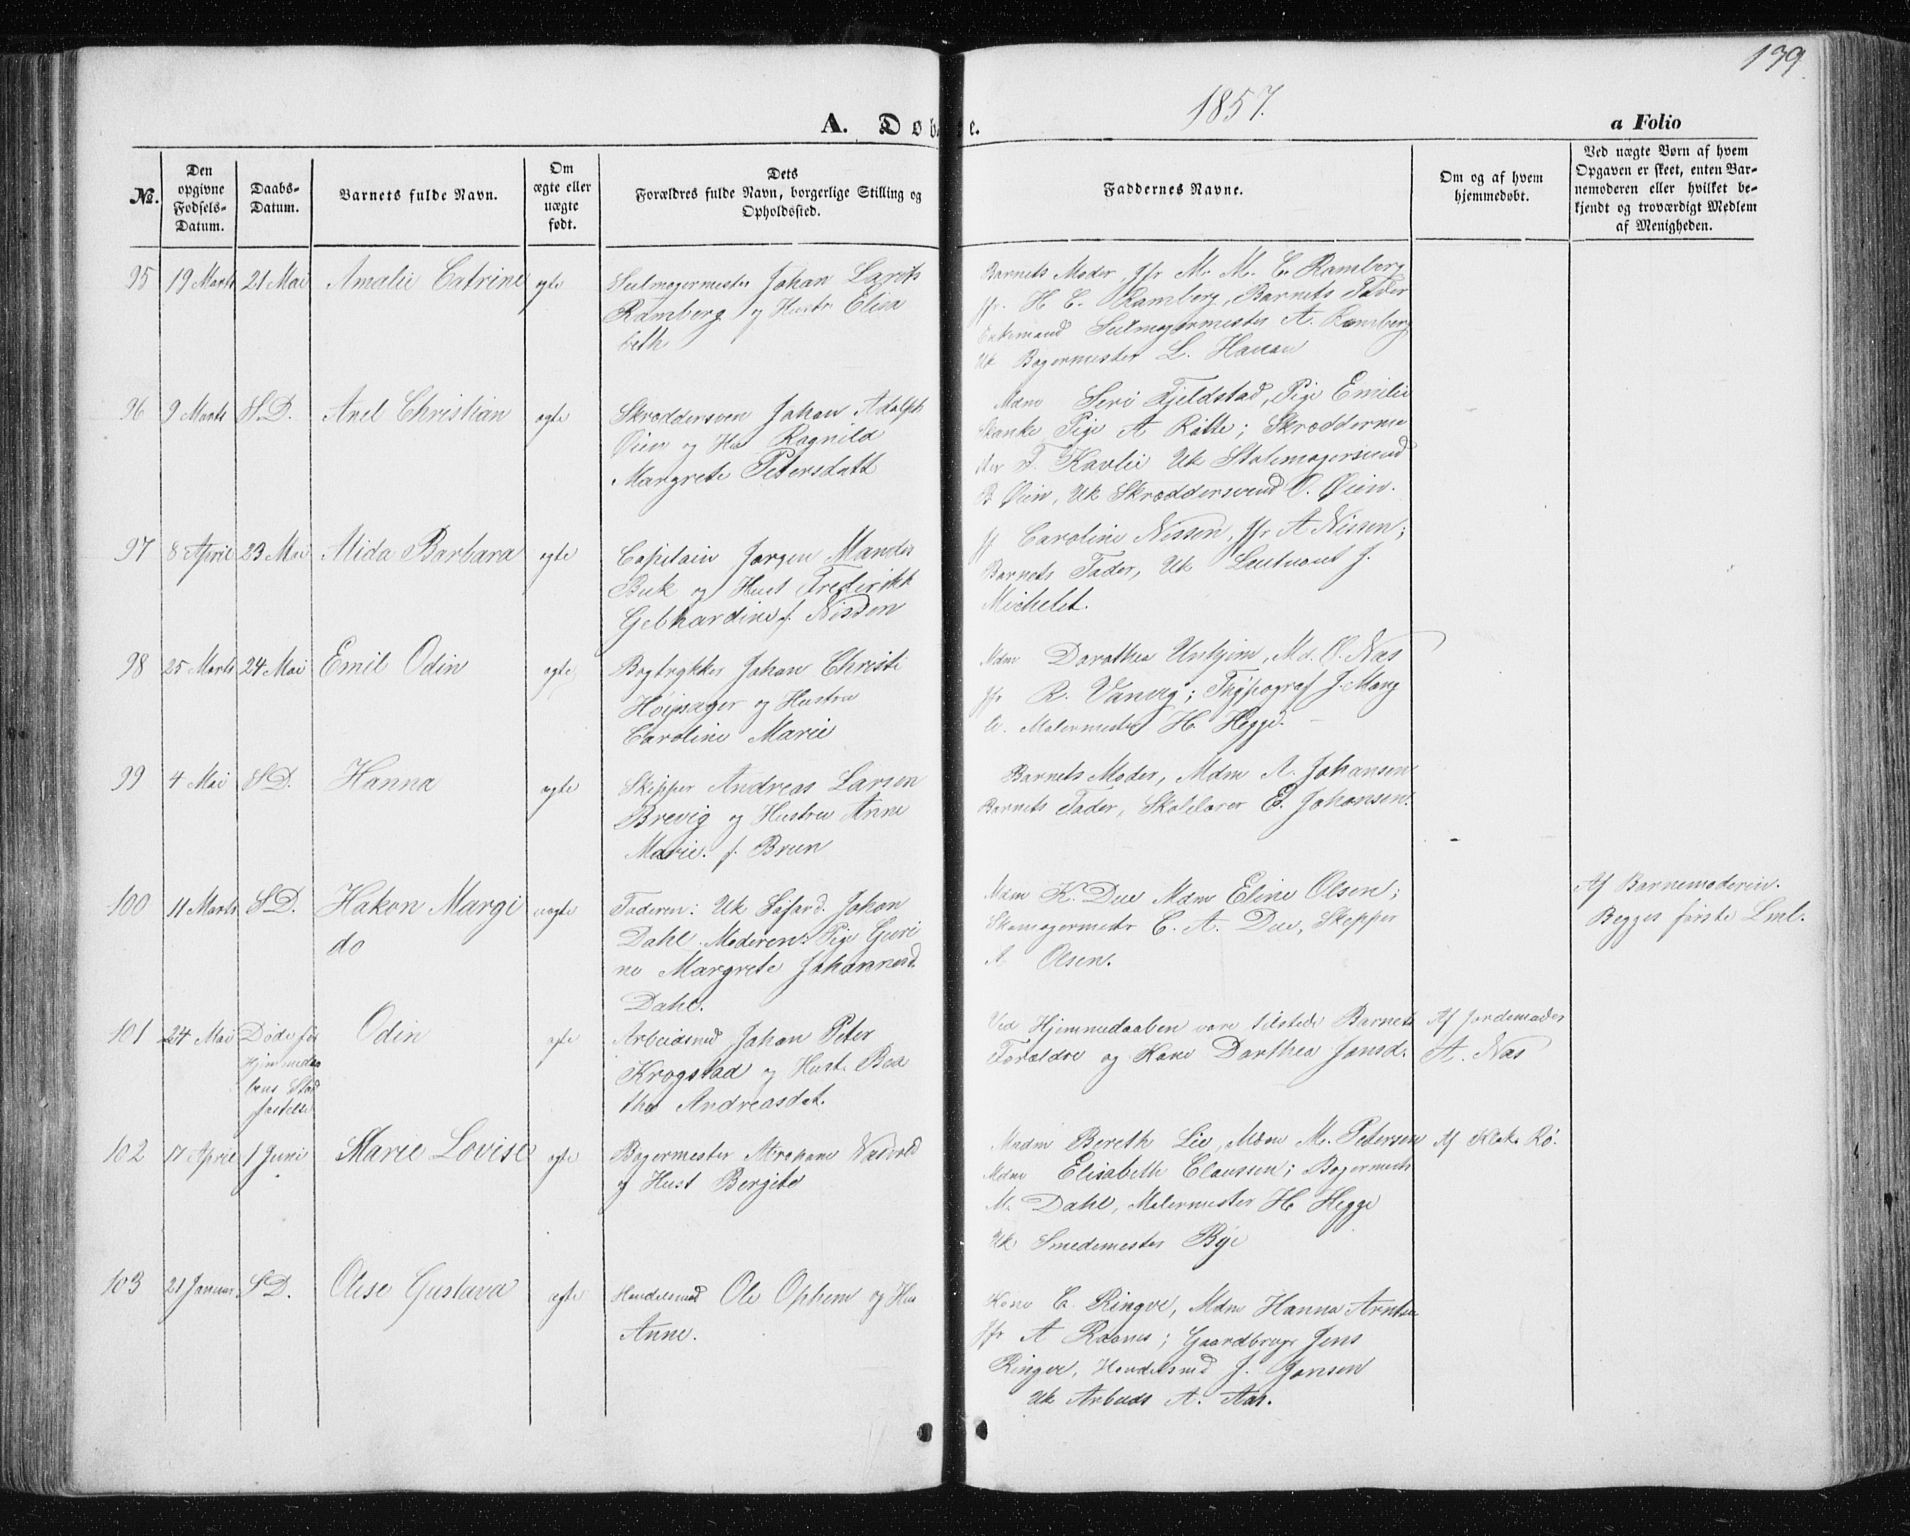 139
1857.
A. Døbte.
a Folio
No.
Den opgivne Fødsels-Datum.
Daabs-Datum.
Barnets fulde Navn.
Om ægte eller uægte født.
Dets Forældres fulde Navn, borgerlige Stilling og Opholdssted.
Faddernes Navne.
Om og af hvem hjemmedøbt.
Ved uægte Børn af hvem Opgaven er skeet, enten Barnemoderen eller hvilket bekjendt og troværdigt Medlem af Menigheden.
95 19 Marts 21 Mai Amalie Catrine egte
Seilmagermester Johan
Ramberg og Hustr Elisa
beth
Barnets Moder, Jfr M. M. C. Ramberg
Jfr. H C. Ramberg, Barnets Fader
Enkemand Seilmagermester A. Ramberg
Uk Bagermester L. Hansen
96 9 Marts S.D. Axel Christian egte
Skræddersven Johan Adolph
Øien og Hu Ragnild
Margrete Petersdatt
Mdm Seri Fjeldstad, Pige Emilie
Skanke Pige A Rötte; Skrædderme
ster F. Kavlie Uk Stolemagersvend
B Øien, Uk Skræddersvend O. Øien.
97 8 April 23 Mai Alida Barbara egte
Capitain Jørgen Mandes
Buk og Hust Frederikk
Gebhardine f. Nissen
Jf Caroline Nissen, Jfr A Nissen;
Barnets Fader, Uk Leutnant J.
Michelet.
98 25 Marts 24 Mai Emil Odin egte
Bogtrykker Johan Christi
Høipsager og Hustru
Caroline Marie
Mdm Dorothea Unhjem, Md. O. Næs
Jfr R. Vanvig; Thypograf J. Marg
Malermester H. Hegge.
99 4 Mai S.D. Hanna egte
Skipper Andreas Larsen
Brevig og Hustru Anne
Marie f. Brun
Barnets Moder, Mdm A. Johansen
Barnets Fader, Skolelærer E. Johansen.
100 11 Marts S.D. Hakon Margi
do
uegte
Faderen: Uk Søfard. Johan
Dahl. Moderen: Pige Guri
ne Margrete Johannesd.
Dahl.
Mdm K. Due Mdm Eline Olsen;
Skomagermestr C. A. Due, Skipper
A. Olsen.
Af Barnemoderen.
Begges første Lml.
101 24 Mai Døde før
Hjemmedaa
bens Stad
fæstelse
Odin egte
Arbeidsmd Johan Peter
Krogstad og Hust. Bea
the Andreasdet.
Ved Hjemmedaaben vare tilstede Barnets
Forældre og Kone Dorthea Jansd.
Af Jordemoder
A. Næs
102 17 April 1 Juni Marie Lovise egte
Bagermester Abraham
og Hust Bergite
Madm Bereth Lie, Mdm M. Petersen
Mdm Elisabeth Claussen; Bagermest
M. Dahl, Malermester H Hegge
Uk Smedemester Bye
Af Klok. Rø.
103 21 Januar S.D. Olise Gustava egte
Handelsmd Ole Ophem og Hu
Anne.
Kone C. Ringve, Mdm Hanna Arntsen
Jfr A Raanes; Gaardbruger Jens
Ringve, Handelsmd J. Jansen
Uk Arbeids A. Aas.